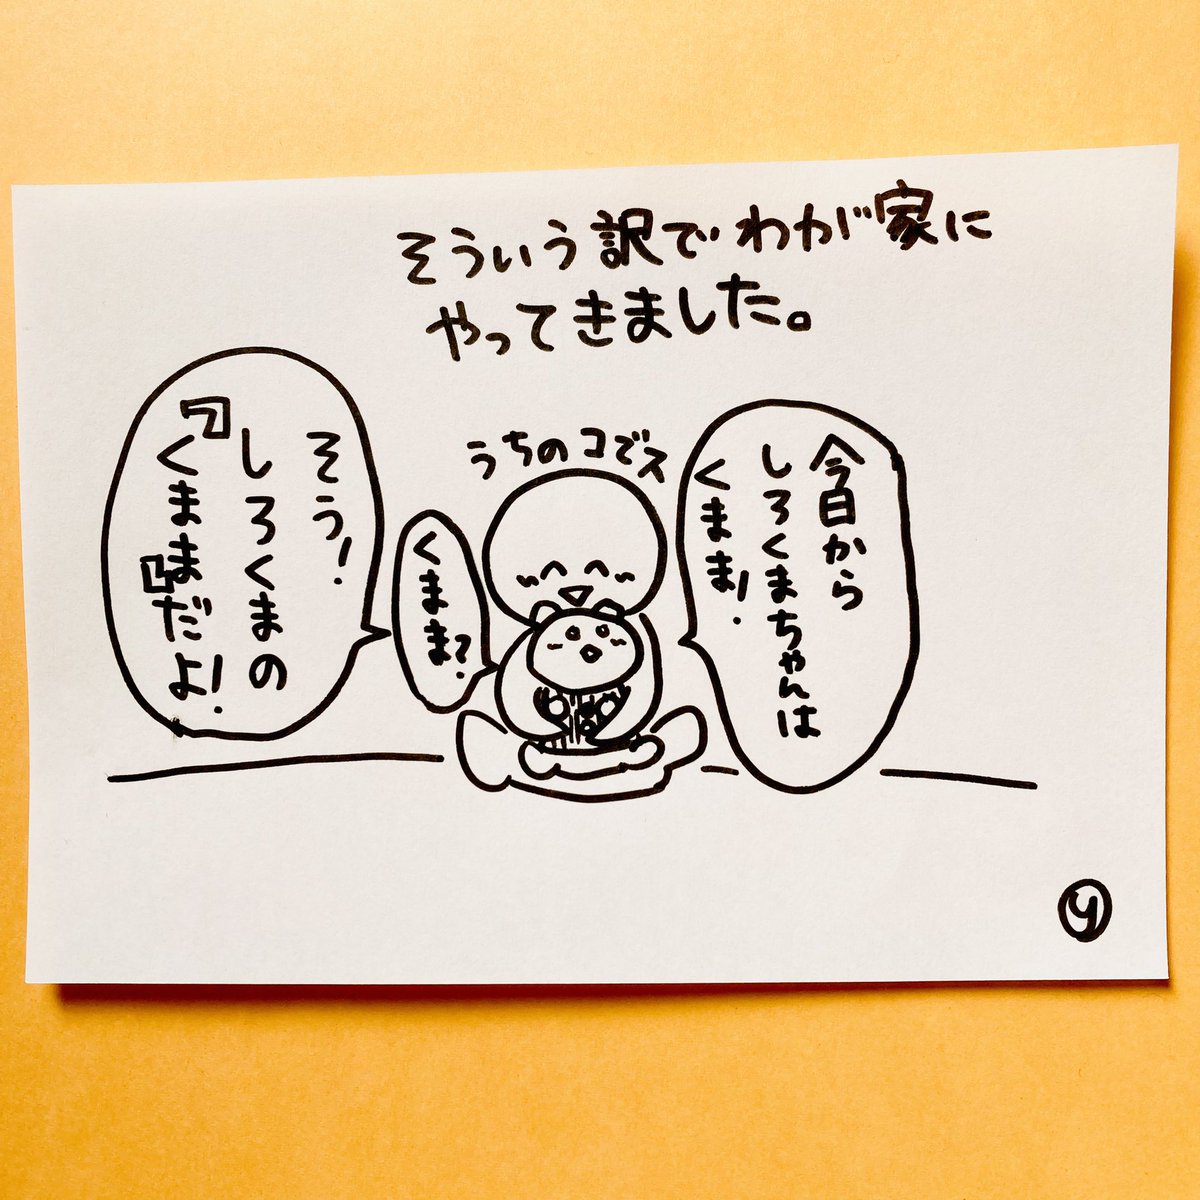 そういう訳でわが家に
やってきました。
うちのコでス
今日から
しろくまちゃんは
くまま!
くまま?
そう!
しろくまの
『くまま』だよ!